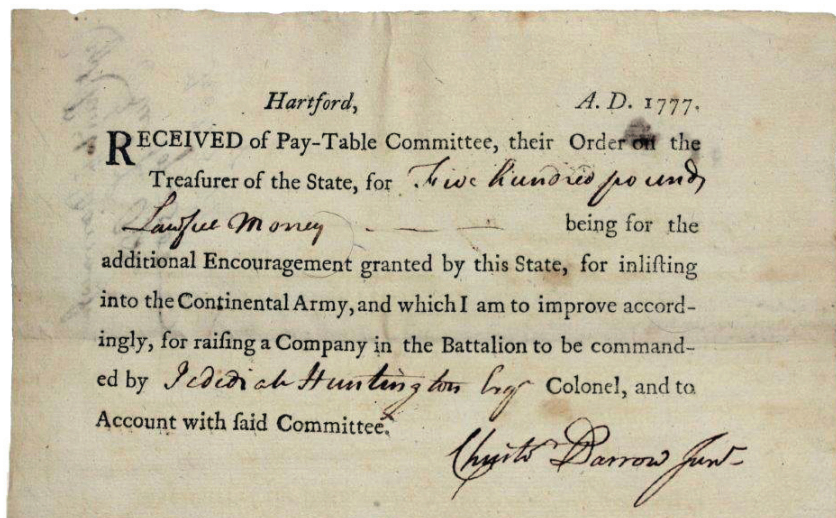 Hartford, A. D. 1777.
RECEIVED of Pay-Table Committee, their Order on the
Treasurer of the State, for Five hundred pounds
Lawful Money — — — being for the
additional Encouragement granted by this State, for inliſting
into the Continental Army, and which I am to improve accord-
ingly, for raiſing a Company in the Battalion to be command-
ed by Jedediah Huntington Esqr Colonel, and to
Account with ſaid Committee.
Christr Darrow Junr